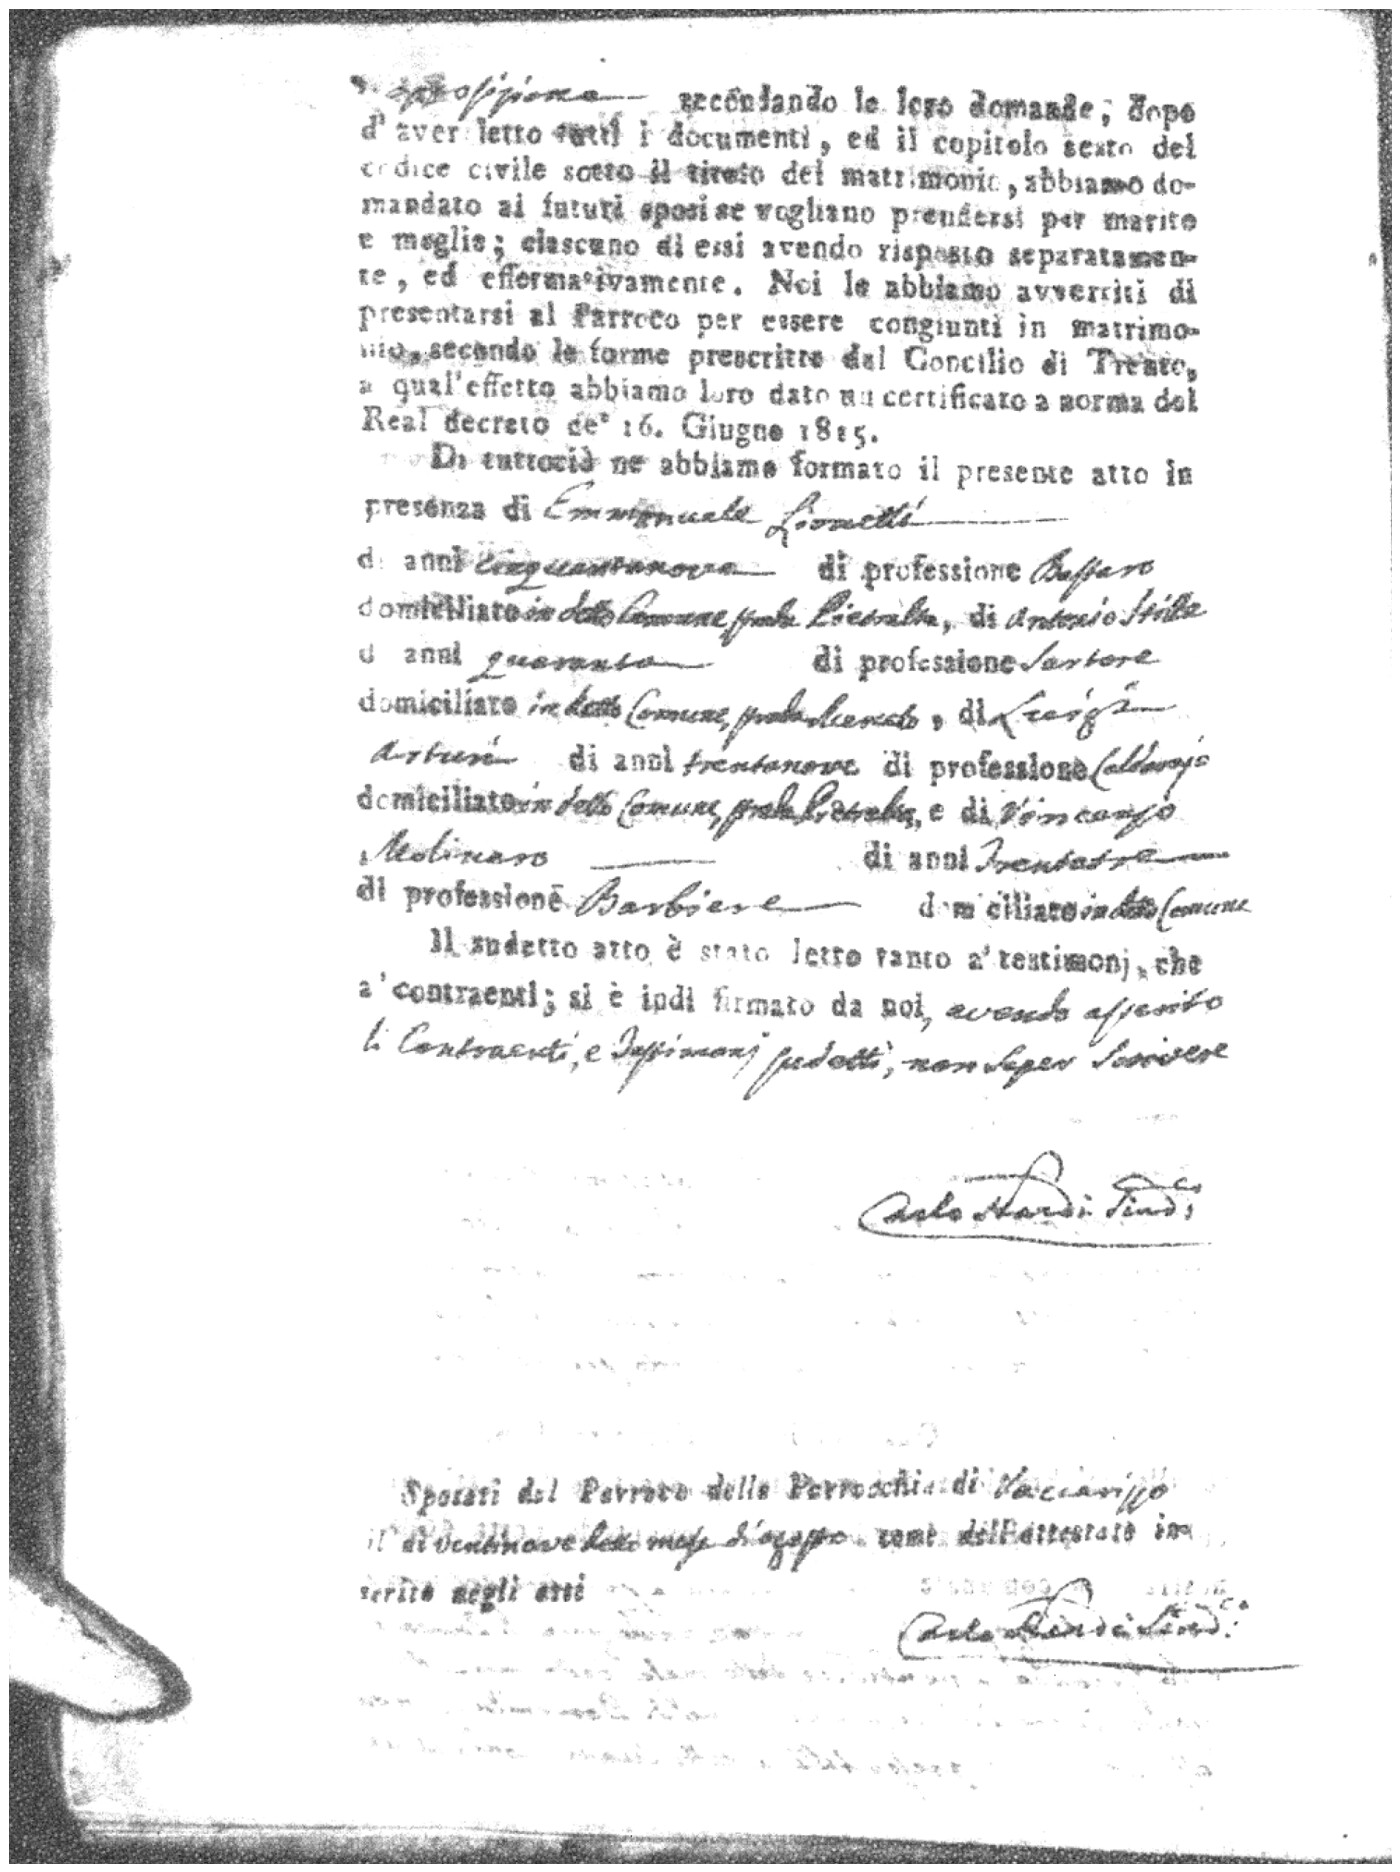 opposizione secondando le loro domande; dopo
d'aver letto tutti i documenti, ed il copitolo sesto del
codice civile sotto il titolo del matrimonio, abbiamo do-
mandato ai futuri sposi se vogliano prendersi per marito
e moglie; ciascuno di essi avendo risposto separatamen-
te, ed effermativamente. Noi le abbiamo avvertiti di
presentarsi al Parroco per essere congiunti in matrimo-
nio, secondo le forme prescritte dal Concilio di Trento,
a qual'effetto abbiamo loro dato un certificato a norma del
Real decreto de' 16. Giugno 1815.
Di tuttociò ne abbiamo formato il presente atto in
presenza di Emmanuele Lionetti
di anni cinquantanove di professione Bastaro
domiciliato in detto Comune, strada Pietralta, di Antonio Stilla
di anni quaranta di professione Sartore
domiciliato in detto Comune, strada, di Luigi
Arturi di anni trentanove di professione Caldarajo
domiciliato in detto Comune, strada Pietralta, e di Vincenzo
Molinaro di anni Trentatre
di professione Barbiere domiciliato in detto Comune
Il sudetto atto è stato letto tanto a' testimonj, che
a' contraenti; si è indi firmato da noi, avendo asserito
li Contraenti, e Testimonj sudetti, non saper scrivere
Carlo Sind.co
Sposati dal Parroco della Parrocchia di Vaccarizzo
il dì ventinove detto mese d'agosto come dell'attestato in-
serito negli atti
Carlo Sind.co